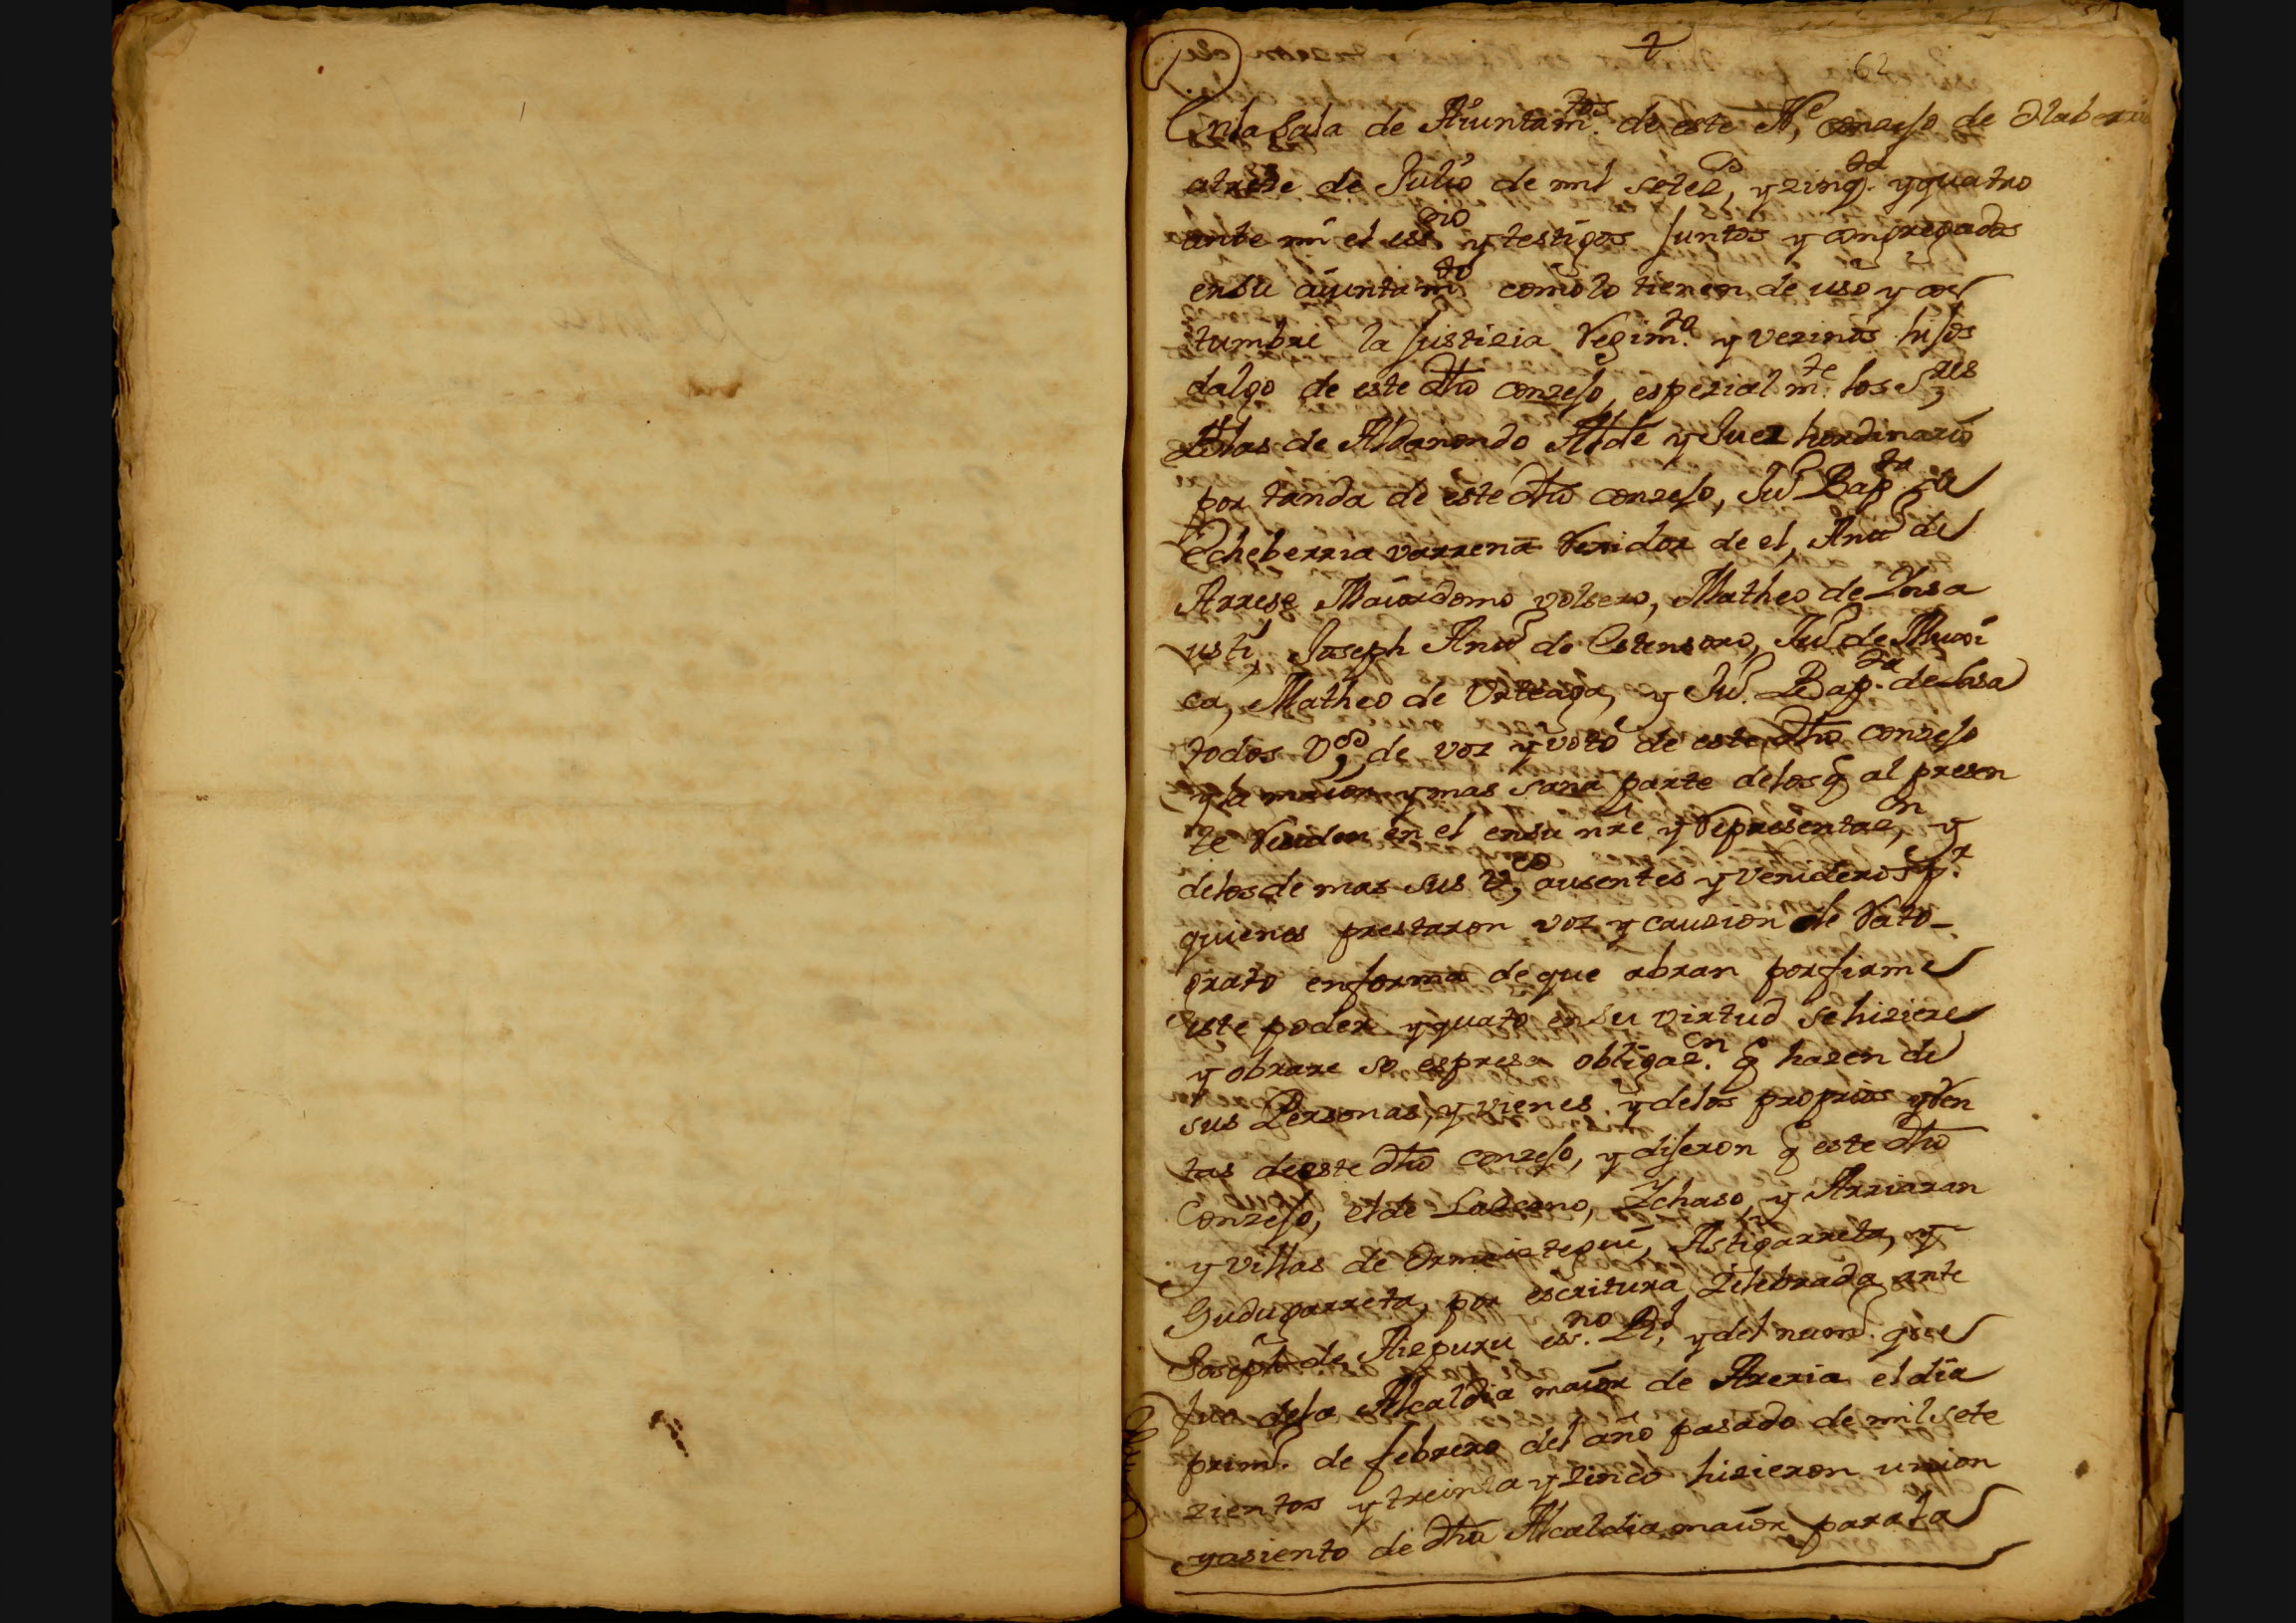 62
En la Sala de Aiuntam.tos de este N.e conzejo de Olaberria
a treze de Julio de mil setez.s y zinq.ta y quatro
ante mi el ess.no y testigos Juntos y congregados
en su aiuntam.to como lo tienen de uso y cos
tumbre la Justizia Regim.to y vezinos hijos
dalgo de este dho conzejo, espezialm.te los S.res
Blas de Aldanondo Alde y Juez hordinario
por tanda de este dho conzejo, Ju.n Bap.ta de
Echeberria varrena Regidor de el, Ant.o de
Arrese Maiordomo volsero, Matheo de Insa
usti, Joseph Ant.o de Estensoro, Ju.n de Muxi
ca, Matheo de Urteaga, y Ju.n Bap.ta de Insa
todos v.os de voz y voto de este dho conzejo
y la maior y mas sana parte de los q al presen
te Residen en el en su nre y Representaz.on y
de los de mas sus v.os ausentes y venideros p.r
quienes prestaron voz y cauzion de Rato
grato en forma de que abran por firme
este poder y quato en su virtud se hiziere
y obrare so espresa obligaz.on q hazen de
sus Personas, y vienes y de los propios y Ren
tas de este dho conzejo, y dijeron q este dho
Conzejo, el de Lazcano, Ichaso y Arriaran
y villas de Ormaiztegui, Astigarreta, y
Gudugarreta, por escritura Zelebrada ante
Joseph de Aizpuru es.no Rl, y del num.o que
fue de la Alcaldia maior de Areria el dia
prim.o de febrero del año pasado de mil sete
zientos y treinta y zinco hizieron union
y asiento de dha Alcaldia maior para la